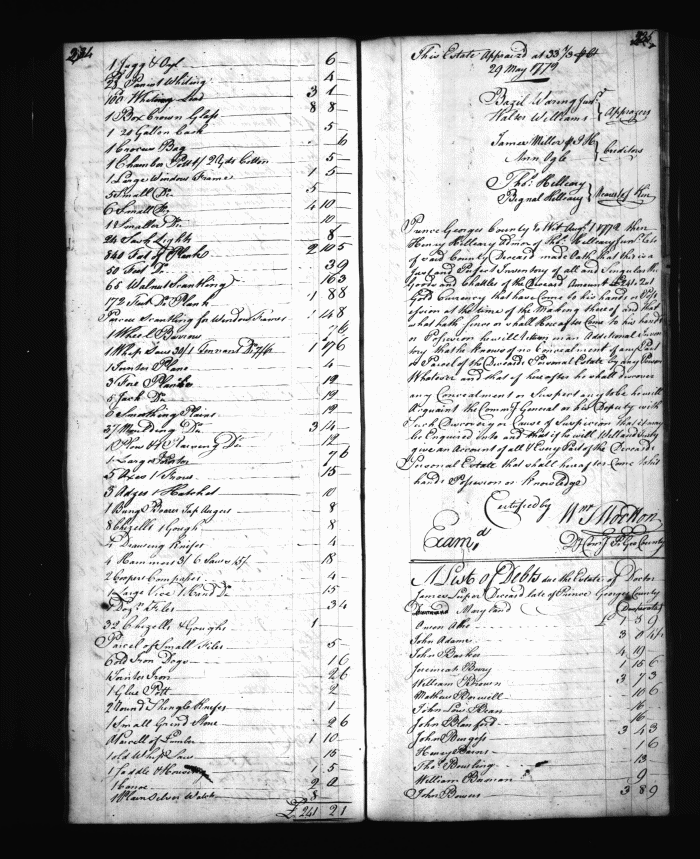 234
1 Jugg & Axl 6
28 Paint Whiting 4
100 Whiting Lead 3 1
1 Box Crown Glass 8 8
1 20 Gallon Cask 5
1 Crocus Bag 6
1 Chamber Pott 1/ 2 Yds Cotton 5
1 Large Window Frame 1 5
5 Small Do 5
6 Small 4 10
1 Smaller Do 10
24 Sash Lights 8
840 Feet of Plank 2 10 5
50 Feet Do 3 9
65 Walnut Scantling 16 3
172 Feet Do Plank 1 8 8
Parcel Scantling for Window Frames 1 4 8
1 Wheel Barrow 7 6
1 Whip Saw 30/ 1 Tennant Do 7/6 1 17 6
1 Jointer Plane 4
3 Fore Planes 12
5 Jack Do 12
2 Smoothing Plains 12
37 Moulding Do 3 14
1 Plow & Planeing Do 12
1 Large 7 6
5 Axes 1 Frow 15
3 Adzes 1 Hatchet 10
1 Bung Borer Tap Augers 8
8 Chizells 1 Gough 8
4 Drawing Knifes 4
4 Hammers 3/ 6 Saws 15/ 18
2 Cooper Compasses 4
1 Large Vice 1 Hand Do 15
Dozn Files 3 4
32 Chizells & Goughs 1
Parcel of Small Files 5
6 old Iron Dogs 1 6
Iron 2 6
1 Glue Pott 2
2 Round Shingle Knifes 1
1 Small Grind Stone 2 6
A Parcell of Lumber 1 10
1 old Whip Saw 15
1 Saddle & Housing 1 5
1 Canoe 2
1 Plain Silver Watch 8
£ 241 2 1
This Estate Appraized at 33 1/3 P Ct
29 May 1772
Bazil Waring Junr
Walter Williams } Apprazers
James Miller
Ann Ogle } Creditors
Thos Hilleary
Bignal Hilleary } Nearest of Kin
Prince Georges County to Wit Augt 1772 then
Henry Hilleary Admor of Thos Hilleary Junr late
of said County Deceased made Oath that this is a
Just and Perfect Inventory of all and Singular the
Goods and Chattles of the Deceased Amount
Currency that have Come to his hands or Poss
ession at the time of the Making thereof and that
what hath since or shall Hereafter Come to his hands
or Possession he will return in an Additional Inven
tory that he Knows of no Concealment of any Part
or Parcel of the Deceaseds Personal Estate by any Person
Whatever and that if hereafter he shall discover
any Concealment or Suspect any to be he will
Acquaint the Commy General or his Deputy with
Such Discovery or Cause of Suspicion that it may
be Enquired into and that he will Well and Truly
give an Account of all & Every Part of the Deceaseds
Personal Estate that shall hereafter Come to his
hands Possession or Knowledge
Certified by Wm T Wootton
Examd Dy Comy Pr Geo County
A List of Debts due the Estate of Doctor
James Deceased late of Prince Georges County
Maryland (Desperate)
Owen £ 1 3 9
John Adams 3 0 4 1/2
John Barker 4 19
Jeremiah Berry 1 15 6
William Brown 3 7 3
Mathew Boswell 10 6
John Low Bean 16
John Blanford 16
John Burgess 3 4 3
Henry Barns 16
Thos Bowling 13
William Bowman 9
John Bowers 3 8 9